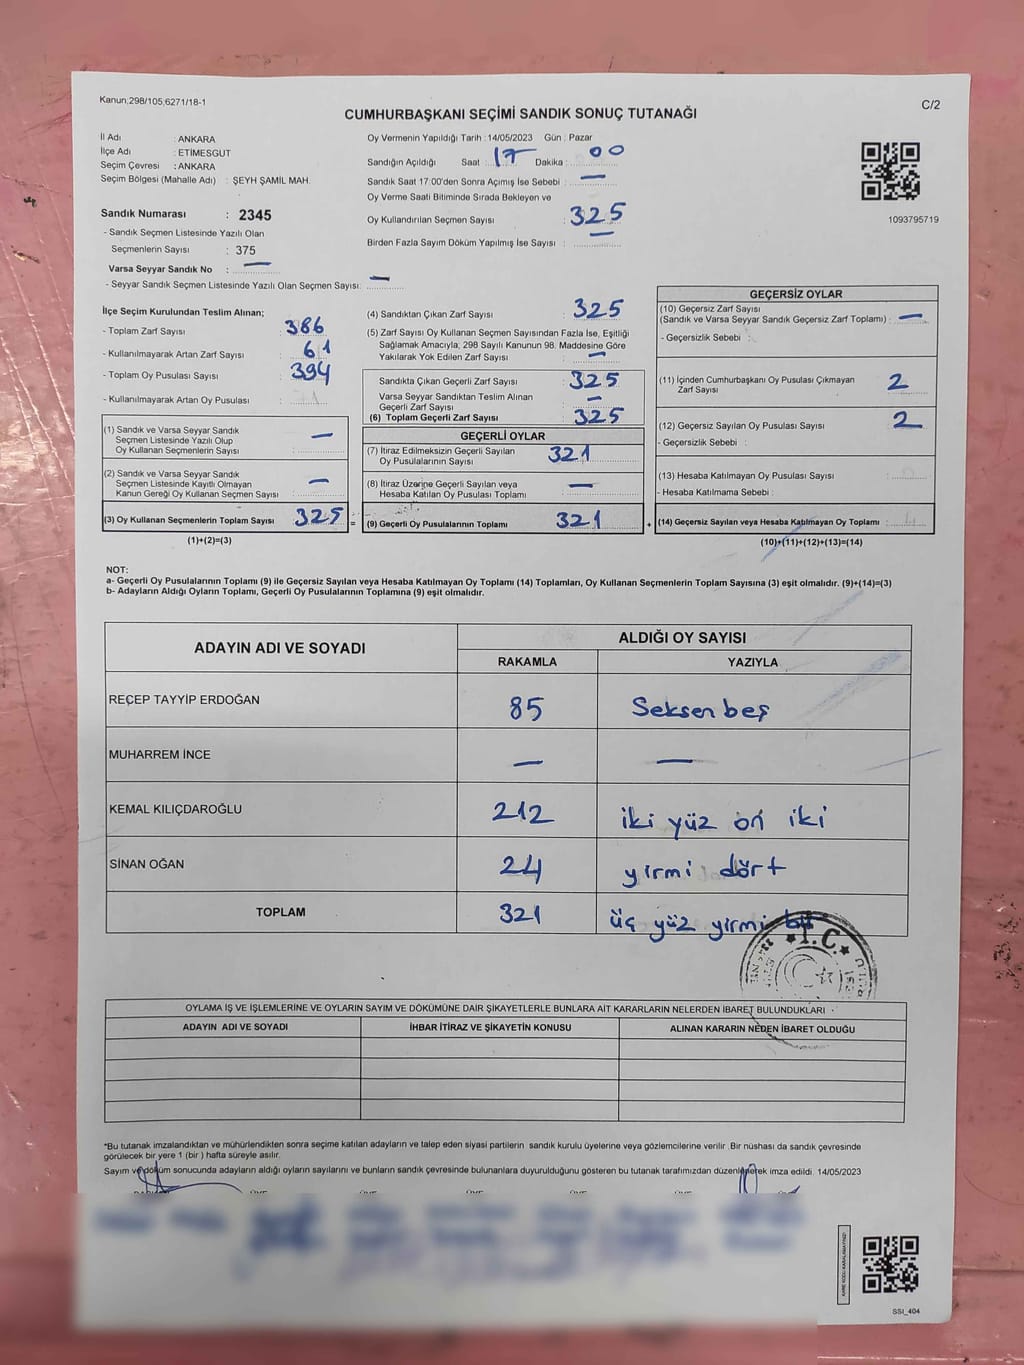 Kanun,298/105,6271/18-1
C/2
CUMHURBAŞKANI SEÇİMİ SANDIK SONUÇ TUTANAĞI
İl Adı : ANKARA
İlçe Adı : ETİMESGUT
Seçim Çevresi : ANKARA
Seçim Bölgesi (Mahalle Adı) : ŞEYH ŞAMİL MAH.
Sandık Numarası : 2345
- Sandık Seçmen Listesinde Yazılı Olan
Seçmenlerin Sayısı : 375
Varsa Seyyar Sandık No : —
- Seyyar Sandık Seçmen Listesinde Yazılı Olan Seçmen Sayısı: —
Oy Vermenin Yapıldığı Tarih : 14/05/2023 Gün : Pazar
Sandığın Açıldığı Saat : 17 Dakika : 00
Sandık Saat 17:00'den Sonra Açımış İse Sebebi : —
Oy Verme Saati Bitiminde Sırada Bekleyen ve
Oy Kullandırılan Seçmen Sayısı : 325
Birden Fazla Sayım Döküm Yapılmış İse Sayısı : —
1093795719
İlçe Seçim Kurulundan Teslim Alınan;
- Toplam Zarf Sayısı : 386
- Kullanılmayarak Artan Zarf Sayısı : 61
- Toplam Oy Pusulası Sayısı : 394
- Kullanılmayarak Artan Oy Pusulası :
(1) Sandık ve Varsa Seyyar Sandık
Seçmen Listesinde Yazılı Olup
Oy Kullanan Seçmenlerin Sayısı : —
(2) Sandık ve Varsa Seyyar Sandık
Seçmen Listesinde Kayıtlı Olmayan
Kanun Gereği Oy Kullanan Seçmen Sayısı : —
(3) Oy Kullanan Seçmenlerin Toplam Sayısı : 325 =
(1)+(2)=(3)
(4) Sandıktan Çıkan Zarf Sayısı : 325
(5) Zarf Sayısı Oy Kullanan Seçmen Sayısından Fazla İse, Eşitliği
Sağlamak Amacıyla; 298 Sayılı Kanunun 98. Maddesine Göre
Yakılarak Yok Edilen Zarf Sayısı : —
Sandıkta Çıkan Geçerli Zarf Sayısı : 325
Varsa Seyyar Sandıktan Teslim Alınan
Geçerli Zarf Sayısı : —
(6) Toplam Geçerli Zarf Sayısı : 325
GEÇERLİ OYLAR
(7) İtiraz Edilmeksizin Geçerli Sayılan
Oy Pusulalarının Sayısı : 321
(8) İtiraz Üzerine Geçerli Sayılan veya
Hesaba Katılan Oy Pusulaları Toplamı : —
(9) Geçerli Oy Pusulalarının Toplamı : 321 +
GEÇERSİZ OYLAR
(10) Geçersiz Zarf Sayısı
(Sandık ve Varsa Seyyar Sandık Geçersiz Zarf Toplamı) : —
- Geçersizlik Sebebi :
(11) İçinden Cumhurbaşkanı Oy Pusulası Çıkmayan
Zarf Sayısı : 2
(12) Geçersiz Sayılan Oy Pusulası Sayısı : 2
- Geçersizlik Sebebi :
(13) Hesaba Katılmayan Oy Pusulası Sayısı :
- Hesaba Katılmama Sebebi :
(14) Geçersiz Sayılan veya Hesaba Katılmayan Oy Toplamı :
(10)+(11)+(12)+(13)=(14)
NOT:
a- Geçerli Oy Pusulalarının Toplamı (9) ile Geçersiz Sayılan veya Hesaba Katılmayan Oy Toplamı (14) Toplamları, Oy Kullanan Seçmenlerin Toplam Sayısına (3) eşit olmalıdır. (9)+(14)=(3)
b- Adayların Aldığı Oyların Toplamı, Geçerli Oy Pusulalarının Toplamına (9) eşit olmalıdır.
ADAYIN ADI VE SOYADI ALDIĞI OY SAYISI
RAKAMLA YAZIYLA
RECEP TAYYİP ERDOĞAN 85 Seksen beş
MUHARREM İNCE — —
KEMAL KILIÇDAROĞLU 212 iki yüz on iki
SİNAN OĞAN 24 yirmi dört
TOPLAM 321 üç yüz yirmi bir
T.C.
OYLAMA İŞ VE İŞLEMLERİNE VE OYLARIN SAYIM VE DÖKÜMÜNE DAİR ŞİKAYETLERLE BUNLARA AİT KARARLARIN NELERDEN İBARET BULUNDUKLARI
ADAYIN ADI VE SOYADI İHBAR İTİRAZ VE ŞİKAYETİN KONUSU ALINAN KARARIN NEDEN İBARET OLDUĞU
*Bu tutanak imzalandıktan ve mühürlendikten sonra seçime katılan adayların ve talep eden siyasi partilerin sandık kurulu üyelerine veya gözlemcilerine verilir .Bir nüshası da sandık çevresinde
görülecek bir yere 1 (bir ) hafta süreyle asılır.
Sayım ve döküm sonucunda adayların aldığı oyların sayılarını ve bunların sandık çevresinde bulunanlara duyurulduğunu gösteren bu tutanak tarafımızdan düzenlenerek imza edildi. 14/05/2023
SSİ_404